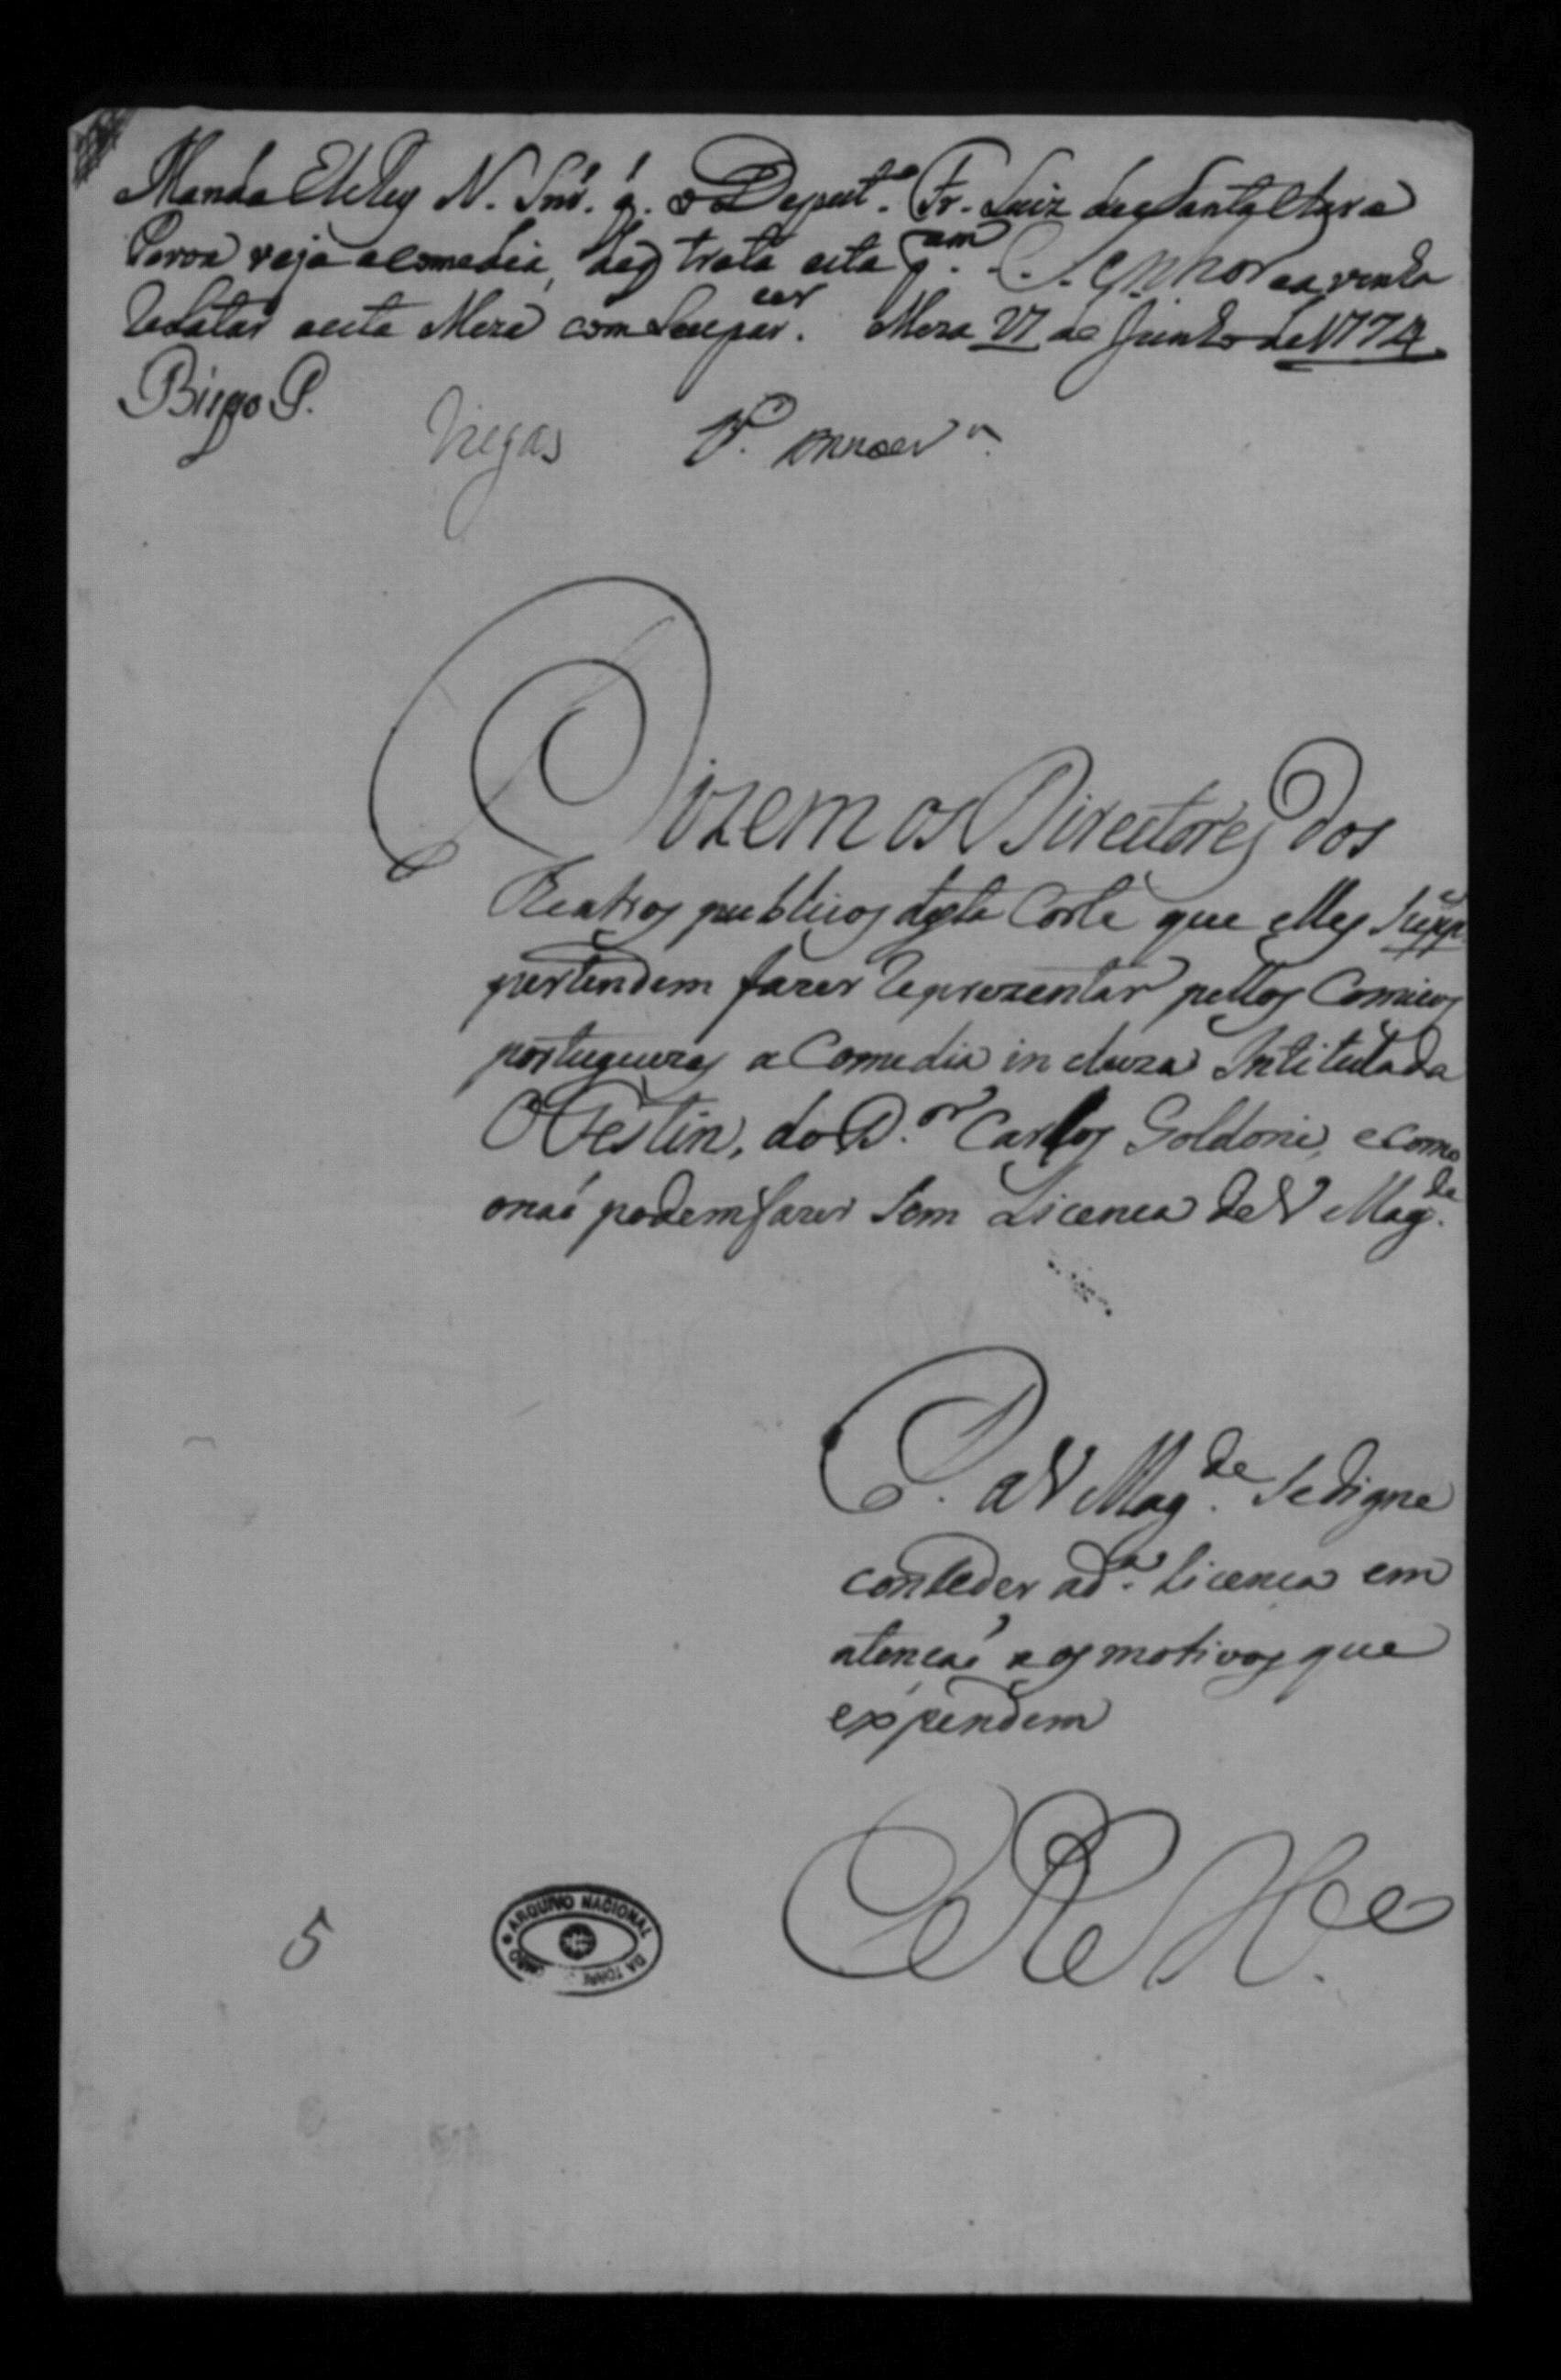 Manda ElRey N. Snr. q. o Deput.º Fr. Luiz de Santa Clara
Povoa veja a comedia, de q trata esta p.am Senhor e a venha
Relatar a esta Meza com seu par.cer Meza 27 de Junho de 1774
Bispo P.
Viegas
Dizem os Directores dos
Theatros publicos desta Corte que elles Supp.es
pertendem fazer Reprezentar pellos Comicos
portuguezes a Comedia incluza Intitulada
O Festin, do D.or Carlos Goldoni, e como
o naõ podem fazer sem Licenca de V Mag.de
P. a V Mag.de Se digne
conceder a d.a Licenca em
atencaõ aos motivos que
expendem
E R M.ce
5
ARQUIVO NACIONAL
DA TORRE DO TOMBO